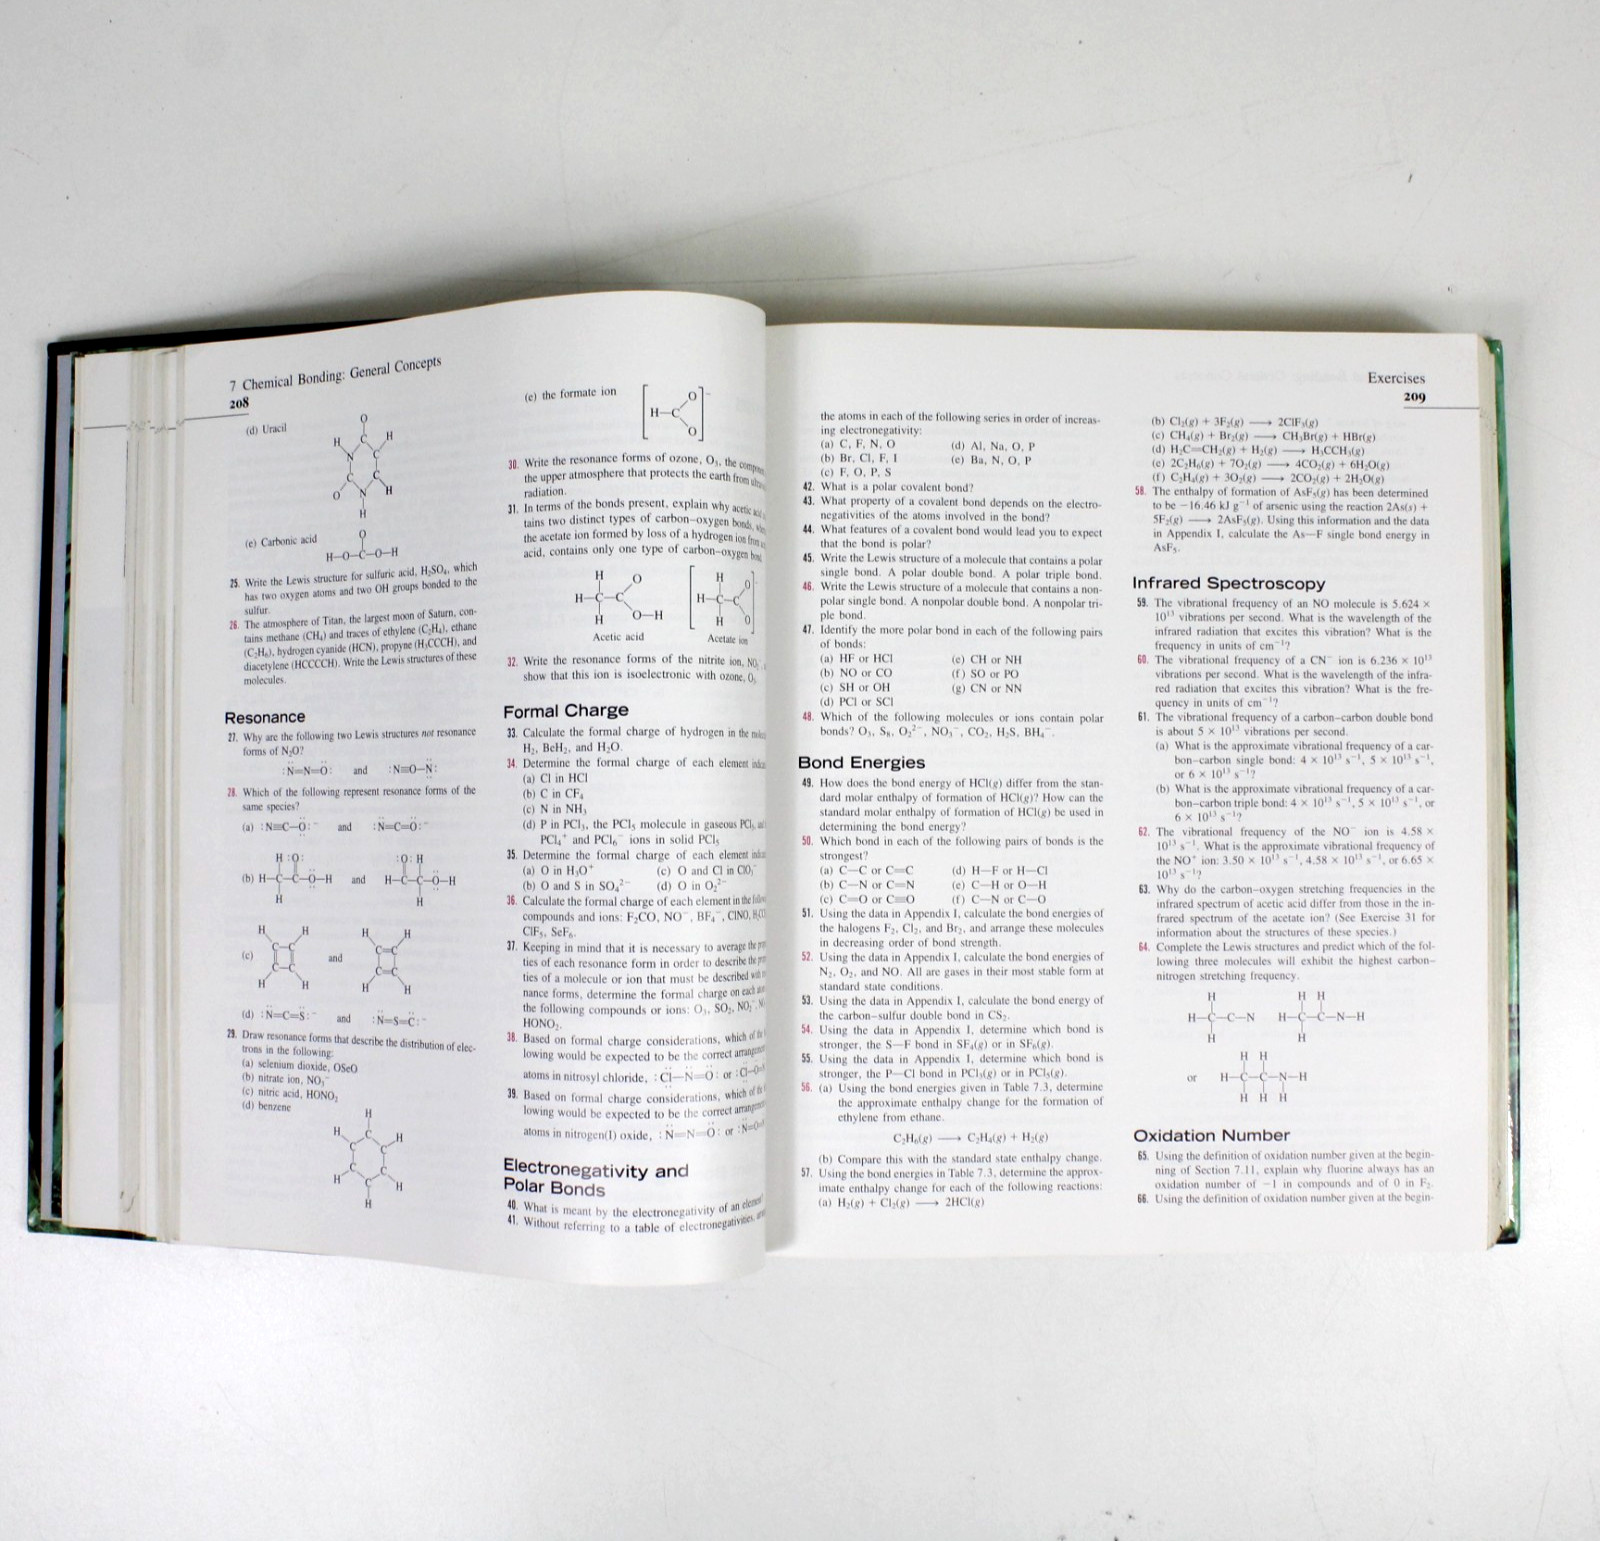 7 Chemical Bonding: General Concepts
208
(d) Uracil
O
H C H
N C
C C
O N H
H
(e) Carbonic acid
O
H—O—C—O—H
25. Write the Lewis structure for sulfuric acid, H₂SO₄, which
has two oxygen atoms and two OH groups bonded to the
sulfur.
26. The atmosphere of Titan, the largest moon of Saturn, con-
tains methane (CH₄) and traces of ethylene (C₂H₄), ethane
(C₂H₆), hydrogen cyanide (HCN), propyne (H₃CCCH), and
diacetylene (HCCCCH). Write the Lewis structures of these
molecules.
Resonance
27. Why are the following two Lewis structures not resonance
forms of N₂O?
:N=N=O: and :N≡O—N:
28. Which of the following represent resonance forms of the
same species?
(a) :N≡C—O:⁻ and :N=C=O:⁻
H :O: :O: H
(b) H—C—C—O—H and H—C—C—O—H
H H
H H H H
C C C C
(c) and
C C C C
H H H H
(d) :N=C=S:⁻ and :N=S=C:⁻
29. Draw resonance forms that describe the distribution of elec-
trons in the following:
(a) selenium dioxide, OSeO
(b) nitrate ion, NO₃⁻
(c) nitric acid, HONO₂
(d) benzene
H
H C H
C C
C C
H C H
H
(e) the formate ion
O
H—C
O
30. Write the resonance forms of ozone, O₃, the
the upper atmosphere that protects the earth from
radiation.
31. In terms of the bonds present, explain why acetic
tains two distinct types of carbon–oxygen bonds,
the acetate ion formed by loss of a hydrogen ion from
acid, contains only one type of carbon–oxygen
H O
H—C—C
H O—H
Acetic acid
H O
H—C—C
H O
Acetate ion
32. Write the resonance forms of the nitrite ion,
show that this ion is isoelectronic with ozone, O₃
Formal Charge
33. Calculate the formal charge of hydrogen in the
H₂, BeH₂, and H₂O.
34. Determine the formal charge of each element
(a) Cl in HCl
(b) C in CF₄
(c) N in NH₃
(d) P in PCl₃, the PCl₅ molecule in gaseous PCl₅,
PCl₄⁺ and PCl₆⁻ ions in solid PCl₅
35. Determine the formal charge of each element
(a) O in H₃O⁺ (c) O and Cl in ClO₃⁻
(b) O and S in SO₄²⁻ (d) O in O₂²⁻
36. Calculate the formal charge of each element in the
compounds and ions: F₂CO, NO⁻, BF₄⁻, ClNO,
ClF₃, SeF₆.
37. Keeping in mind that it is necessary to average the
ties of each resonance form in order to describe the
ties of a molecule or ion that must be described
nance forms, determine the formal charge on each
the following compounds or ions: O₃, SO₂, NO₂⁻,
HONO₂.
38. Based on formal charge considerations, which of
lowing would be expected to be the correct
atoms in nitrosyl chloride, :Cl—N=O: or
39. Based on formal charge considerations, which of
lowing would be expected to be the correct
atoms in nitrogen(I) oxide, :N=N=O: or
Electronegativity and
Polar Bonds
40. What is meant by the electronegativity of an element?
41. Without referring to a table of electronegativities,
the atoms in each of the following series in order of increas-
ing electronegativity:
(a) C, F, N, O (d) Al, Na, O, P
(b) Br, Cl, F, I (e) Ba, N, O, P
(c) F, O, P, S
42. What is a polar covalent bond?
43. What property of a covalent bond depends on the electro-
negativities of the atoms involved in the bond?
44. What features of a covalent bond would lead you to expect
that the bond is polar?
45. Write the Lewis structure of a molecule that contains a polar
single bond. A polar double bond. A polar triple bond.
46. Write the Lewis structure of a molecule that contains a non-
polar single bond. A nonpolar double bond. A nonpolar tri-
ple bond.
47. Identify the more polar bond in each of the following pairs
of bonds:
(a) HF or HCl (e) CH or NH
(b) NO or CO (f) SO or PO
(c) SH or OH (g) CN or NN
(d) PCl or SCl
48. Which of the following molecules or ions contain polar
bonds? O₃, S₈, O₂²⁻, NO₃⁻, CO₂, H₂S, BH₄⁻.
Bond Energies
49. How does the bond energy of HCl(g) differ from the stan-
dard molar enthalpy of formation of HCl(g)? How can the
standard molar enthalpy of formation of HCl(g) be used in
determining the bond energy?
50. Which bond in each of the following pairs of bonds is the
strongest?
(a) C—C or C=C (d) H—F or H—Cl
(b) C—N or C≡N (e) C—H or O—H
(c) C=O or C≡O (f) C—N or C—O
51. Using the data in Appendix I, calculate the bond energies of
the halogens F₂, Cl₂, and Br₂, and arrange these molecules
in decreasing order of bond strength.
52. Using the data in Appendix I, calculate the bond energies of
N₂, O₂, and NO. All are gases in their most stable form at
standard state conditions.
53. Using the data in Appendix I, calculate the bond energy of
the carbon-sulfur double bond in CS₂.
54. Using the data in Appendix I, determine which bond is
stronger, the S—F bond in SF₄(g) or in SF₆(g).
55. Using the data in Appendix I, determine which bond is
stronger, the P—Cl bond in PCl₃(g) or in PCl₅(g).
56. (a) Using the bond energies given in Table 7.3, determine
the approximate enthalpy change for the formation of
ethylene from ethane.
C₂H₆(g) ⟶ C₂H₄(g) + H₂(g)
(b) Compare this with the standard state enthalpy change.
57. Using the bond energies in Table 7.3, determine the approx-
imate enthalpy change for each of the following reactions:
(a) H₂(g) + Cl₂(g) ⟶ 2HCl(g)
Exercises
209
(b) Cl₂(g) + 3F₂(g) ⟶ 2ClF₃(g)
(c) CH₄(g) + Br₂(g) ⟶ CH₃Br(g) + HBr(g)
(d) H₂C=CH₂(g) + H₂(g) ⟶ H₃CCH₃(g)
(e) 2C₂H₆(g) + 7O₂(g) ⟶ 4CO₂(g) + 6H₂O(g)
(f) C₂H₄(g) + 3O₂(g) ⟶ 2CO₂(g) + 2H₂O(g)
58. The enthalpy of formation of AsF₅(g) has been determined
to be −16.46 kJ g⁻¹ of arsenic using the reaction 2As(s) +
5F₂(g) ⟶ 2AsF₅(g). Using this information and the data
in Appendix I, calculate the As—F single bond energy in
AsF₅.
Infrared Spectroscopy
59. The vibrational frequency of an NO molecule is 5.624 ×
10¹³ vibrations per second. What is the wavelength of the
infrared radiation that excites this vibration? What is the
frequency in units of cm⁻¹?
60. The vibrational frequency of a CN⁻ ion is 6.236 × 10¹³
vibrations per second. What is the wavelength of the infra-
red radiation that excites this vibration? What is the fre-
quency in units of cm⁻¹?
61. The vibrational frequency of a carbon–carbon double bond
is about 5 × 10¹³ vibrations per second.
(a) What is the approximate vibrational frequency of a car-
bon–carbon single bond: 4 × 10¹³ s⁻¹, 5 × 10¹³ s⁻¹,
or 6 × 10¹³ s⁻¹?
(b) What is the approximate vibrational frequency of a car-
bon–carbon triple bond: 4 × 10¹³ s⁻¹, 5 × 10¹³ s⁻¹, or
6 × 10¹³ s⁻¹?
62. The vibrational frequency of the NO⁻ ion is 4.58 ×
10¹³ s⁻¹. What is the approximate vibrational frequency of
the NO⁺ ion: 3.50 × 10¹³ s⁻¹, 4.58 × 10¹³ s⁻¹, or 6.65 ×
10¹³ s⁻¹?
63. Why do the carbon–oxygen stretching frequencies in the
infrared spectrum of acetic acid differ from those in the in-
frared spectrum of the acetate ion? (See Exercise 31 for
information about the structures of these species.)
64. Complete the Lewis structures and predict which of the fol-
lowing three molecules will exhibit the highest carbon–
nitrogen stretching frequency.
H H H
H—C—C—N H—C—C—N—H
H H
H H
or H—C—C—N—H
H H H
Oxidation Number
65. Using the definition of oxidation number given at the begin-
ning of Section 7.11, explain why fluorine always has an
oxidation number of −1 in compounds and of 0 in F₂.
66. Using the definition of oxidation number given at the begin-